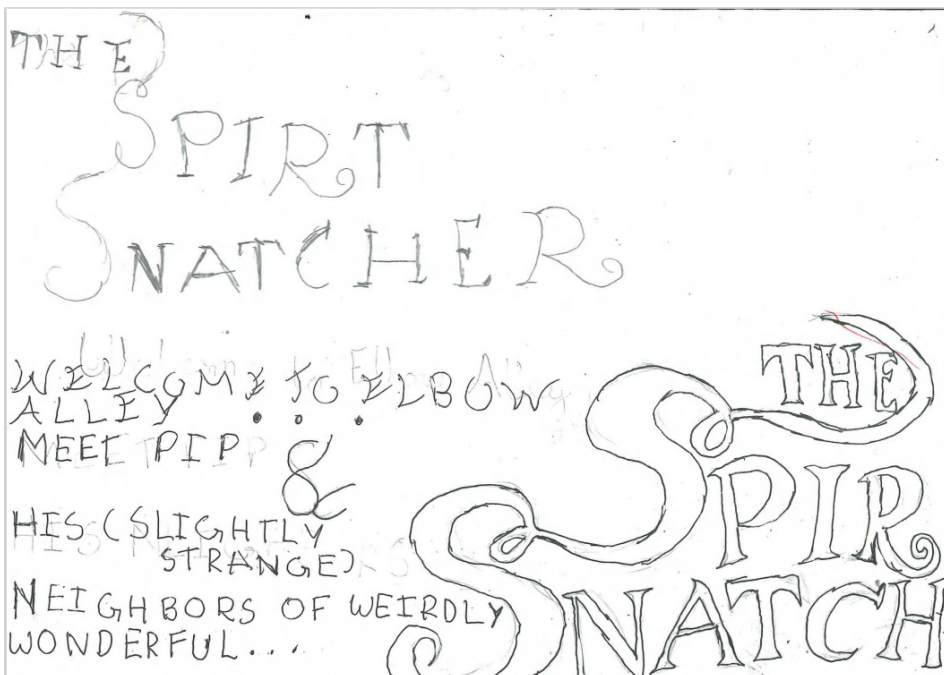 THE
SPIRT
SNATCHER
WELCOME TO ELBOW
ALLEY ...
MEET PIP &
HIS (SLIGHTLY
STRANGE)
NEIGHBORS OF WEIRDLY
WONDERFUL...
THE
SPIR
SNATCH